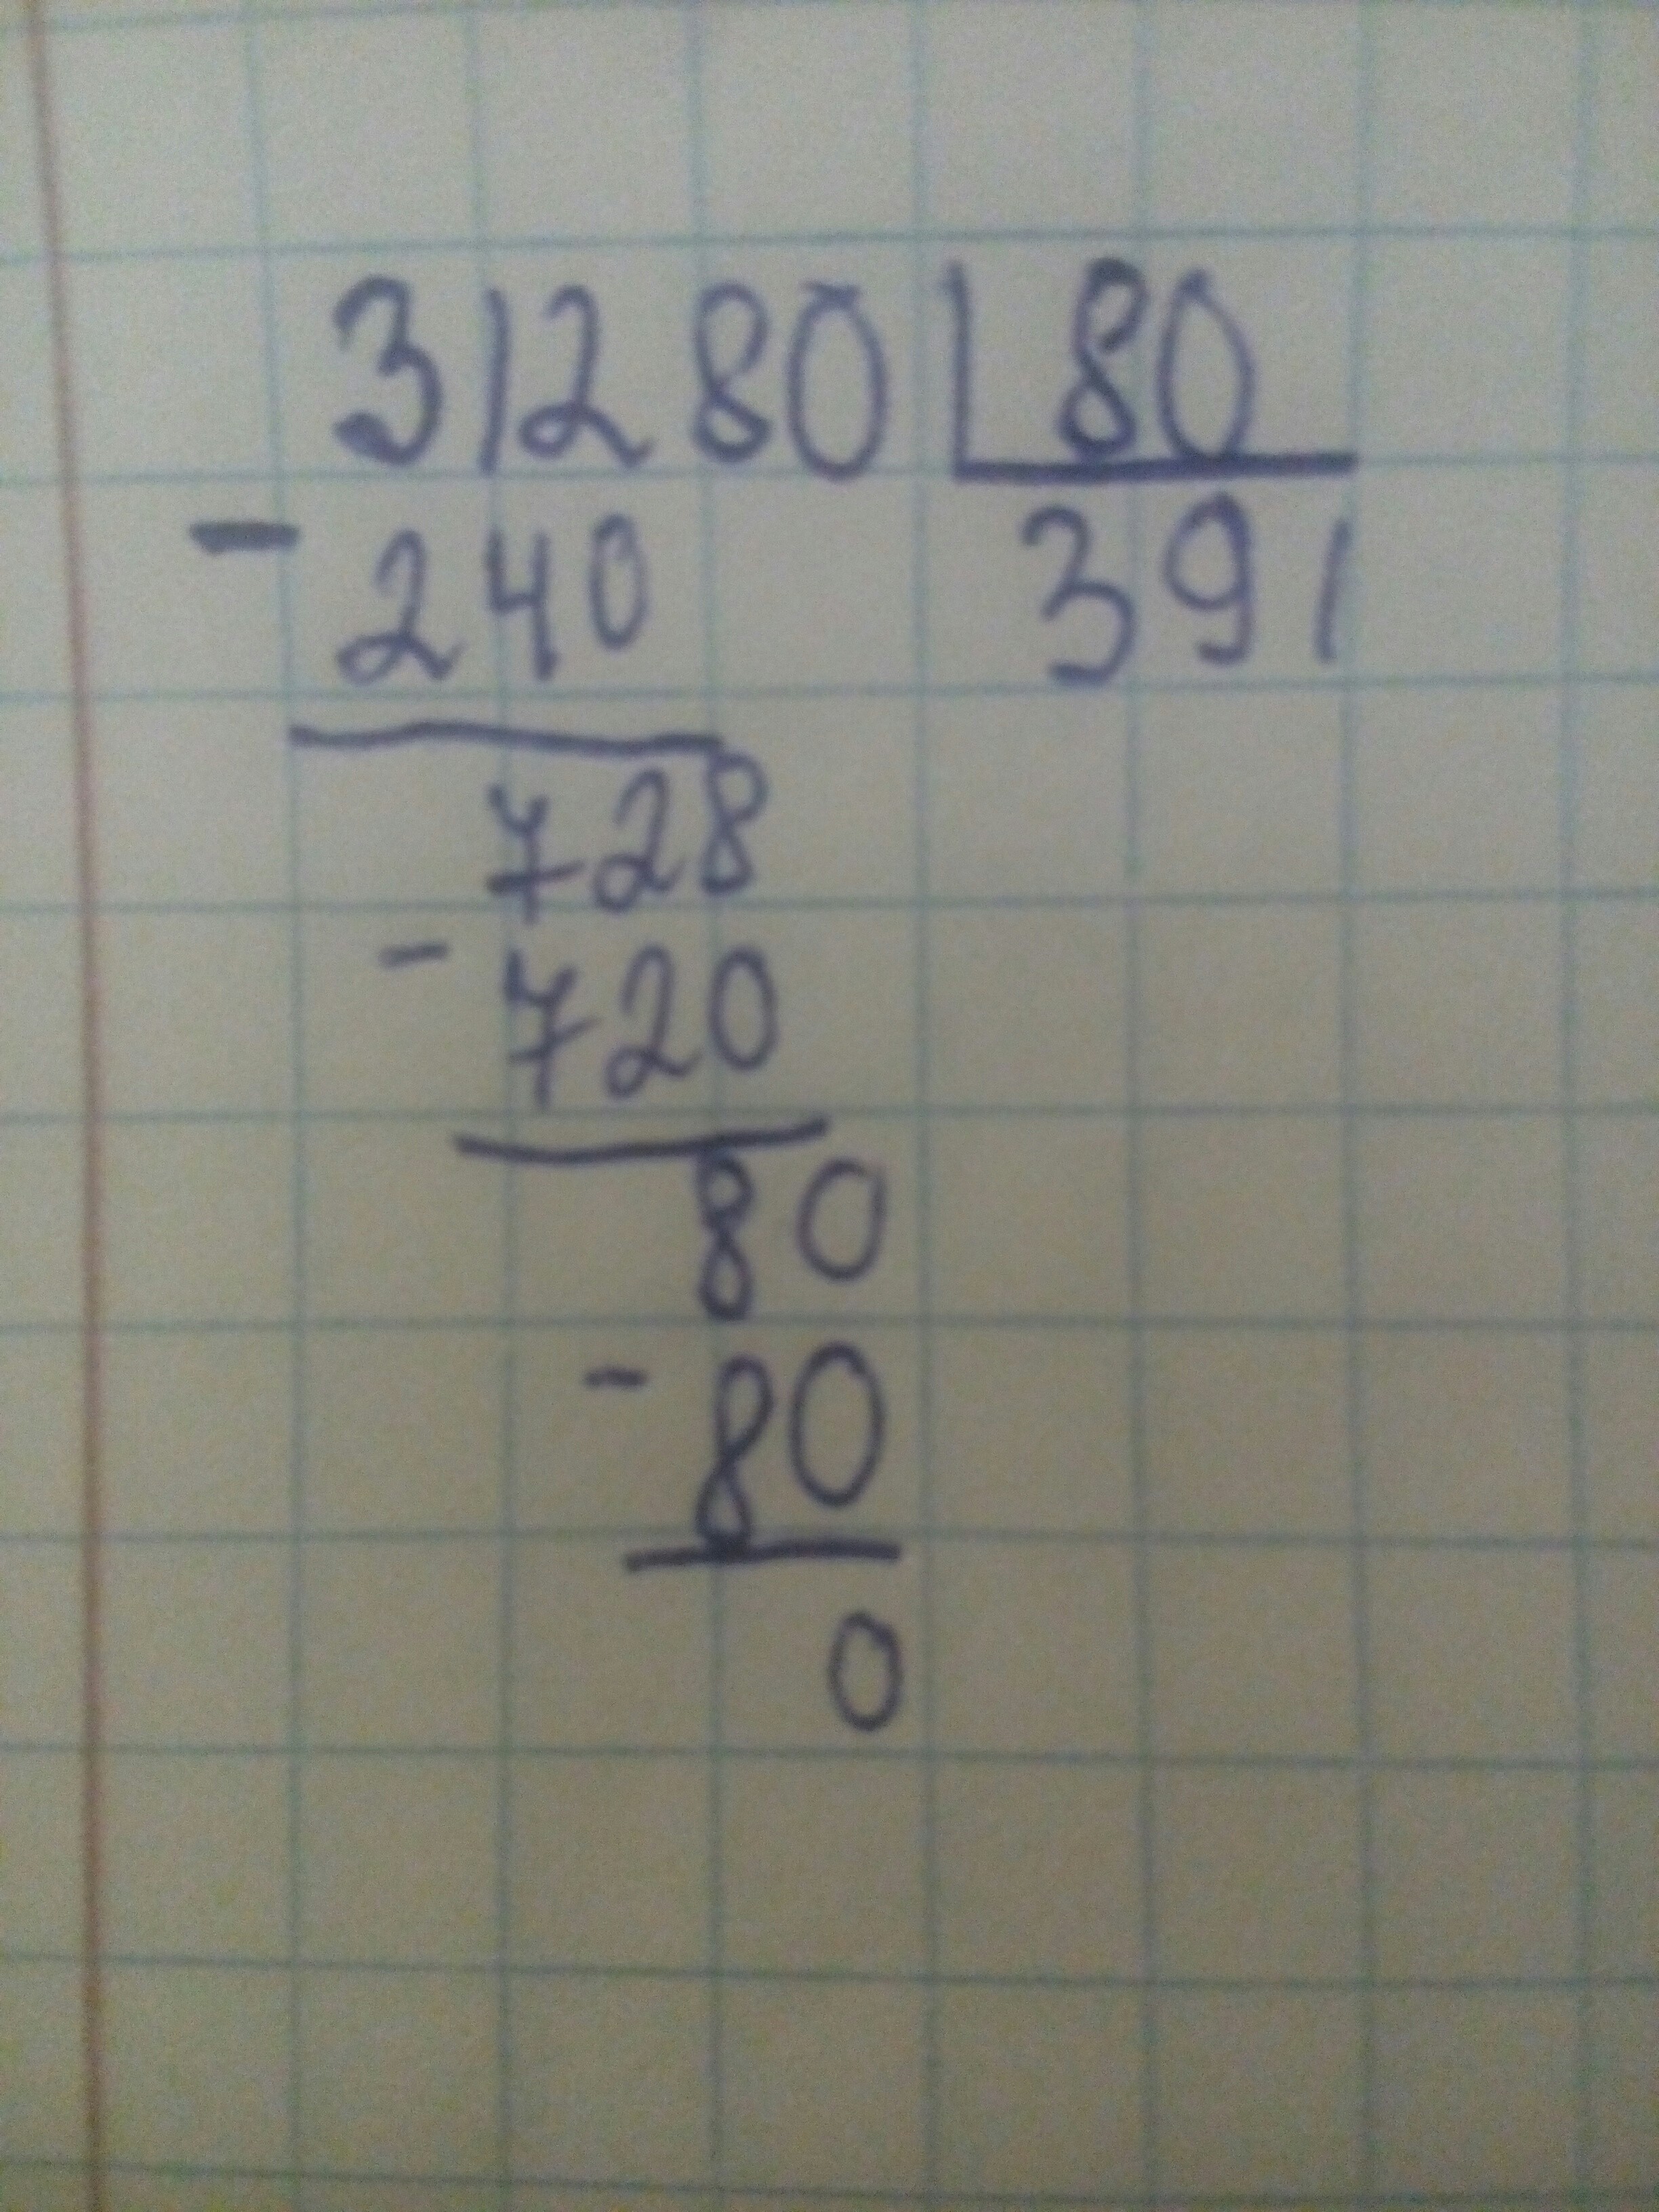 31280 80
- 240 391
728
- 720
80
- 80
0